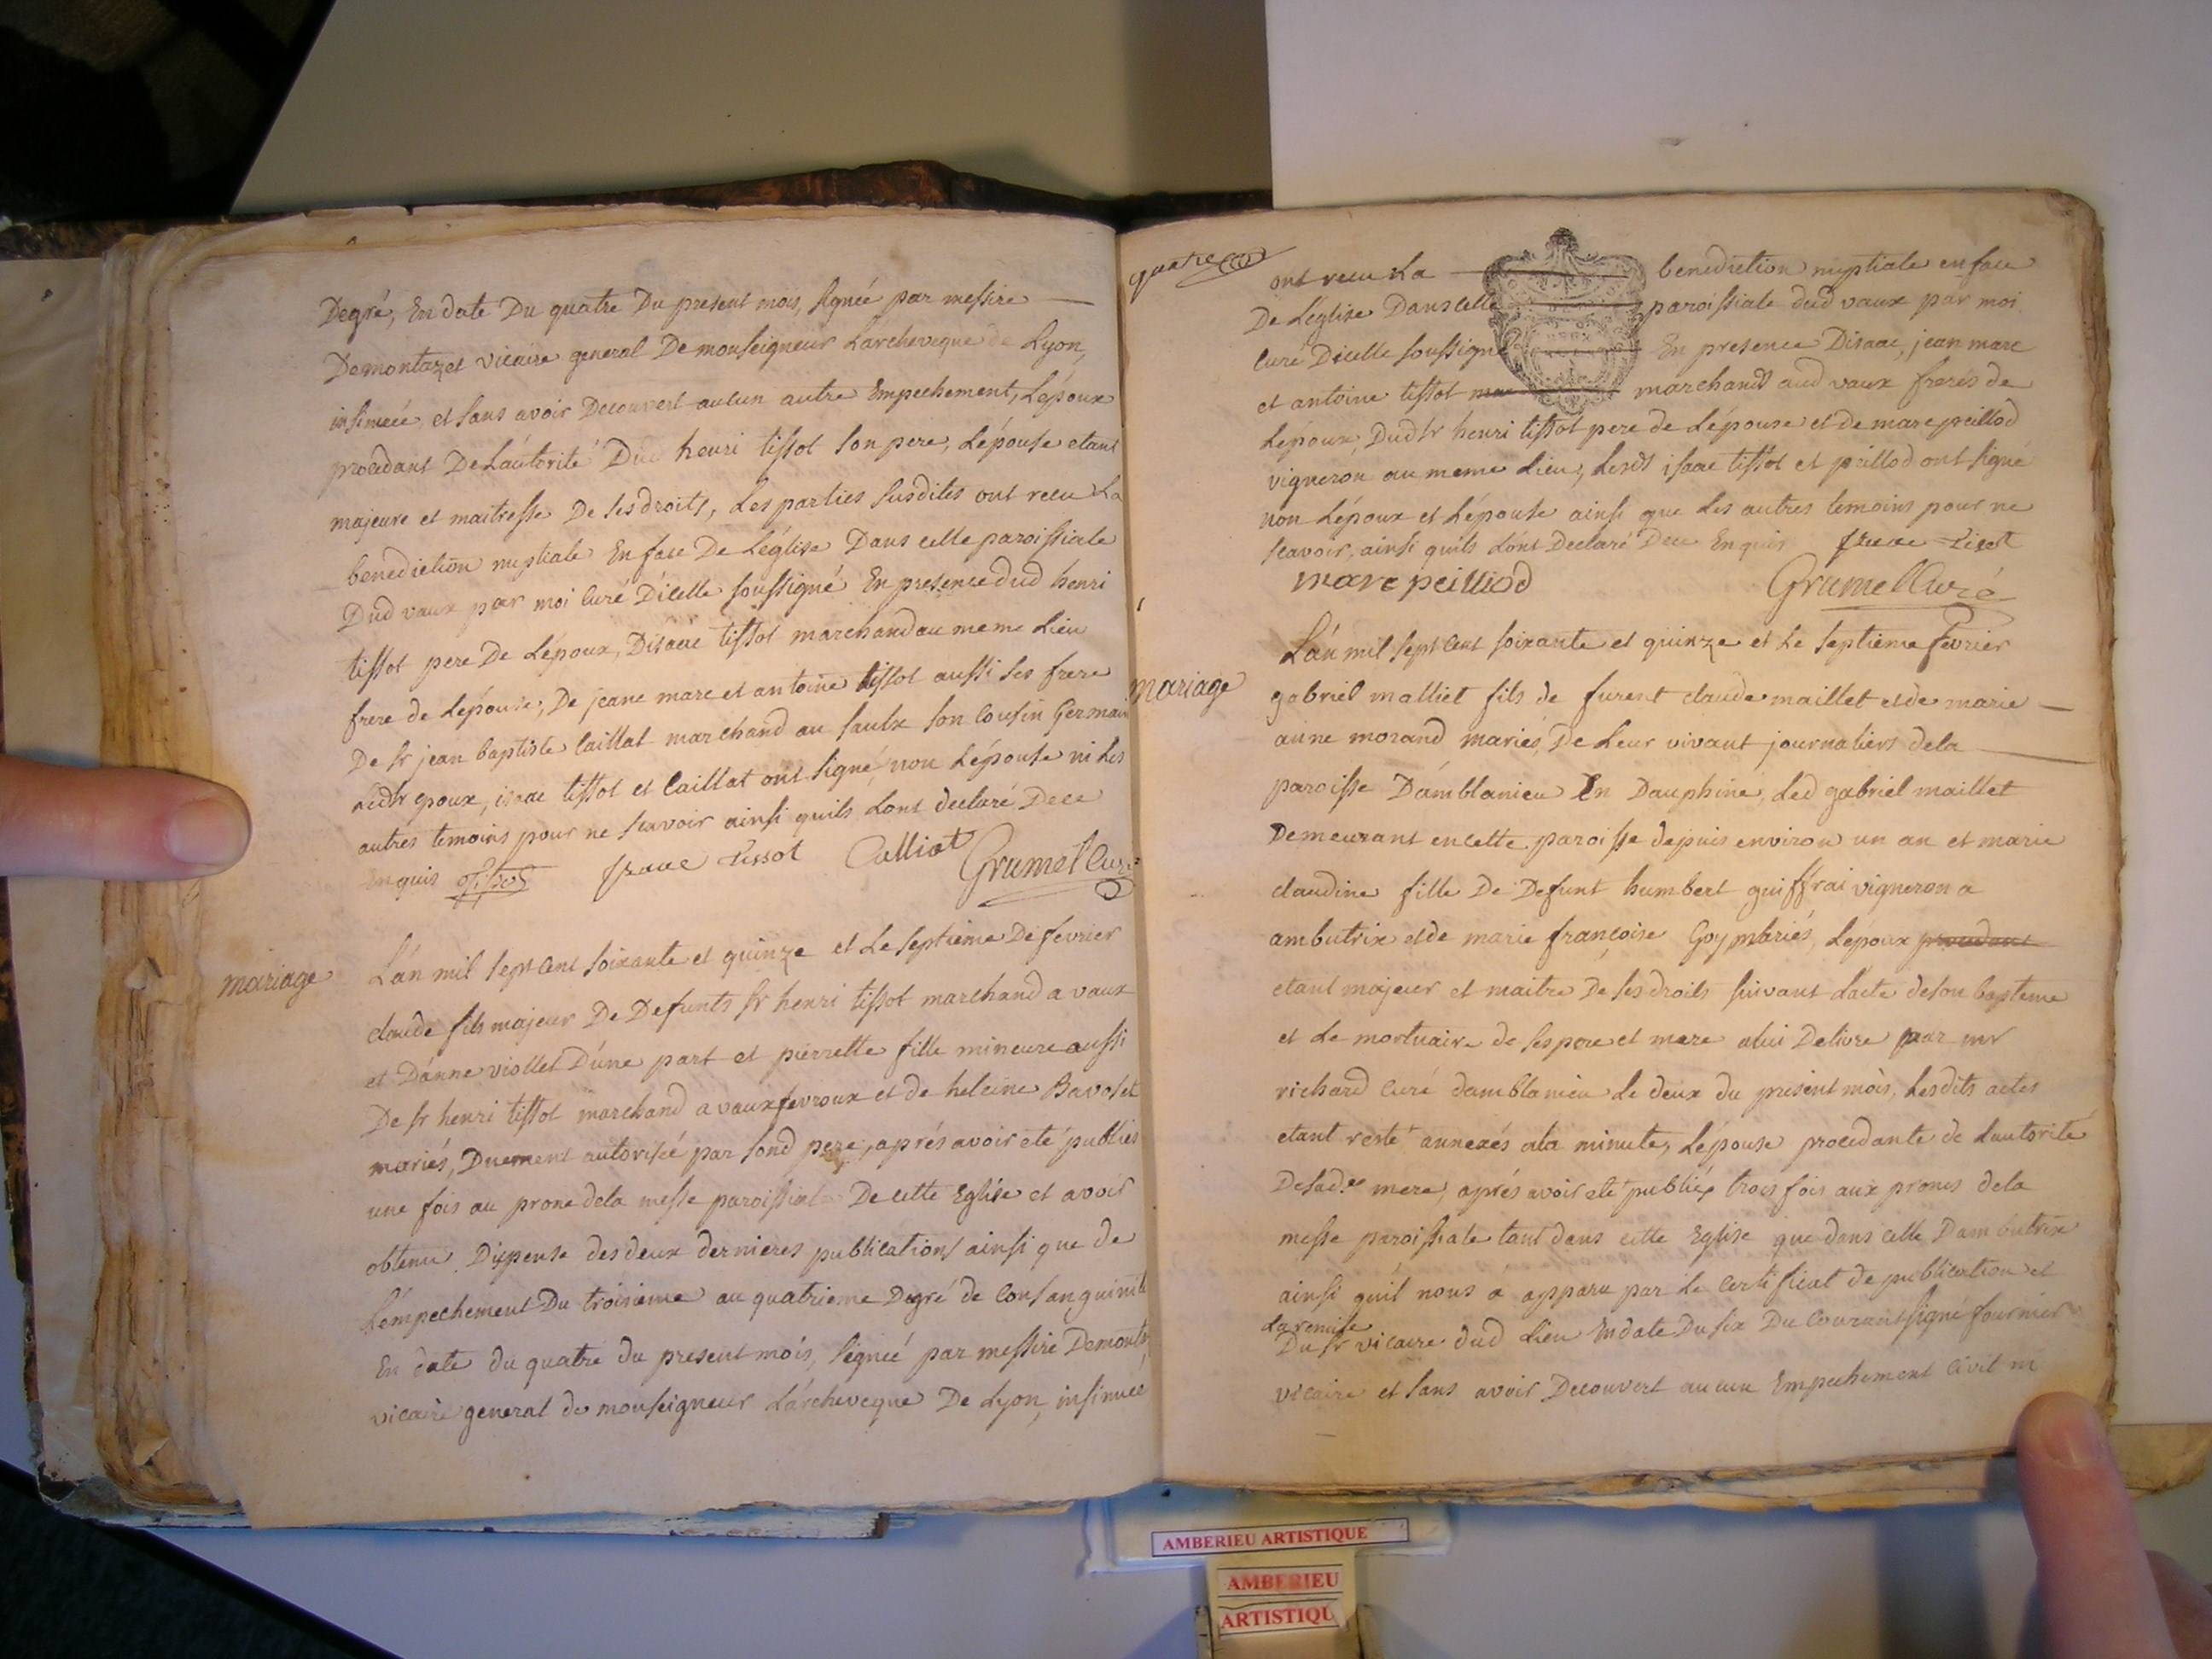 Degré, En date Du quatre Du present mois, signée par messire
Demontazet vicaire general De monseigneur Larcheveque de Lyon,
insinuée, et sans avoir Decouvert aucun autre Empechement, Lépoux
procedant De Láutorité Dud henri tissot son pere, Lépouse etant
majeure et maitresse De ses droits, Les parties susdites ont recu La
benediction nuptiale En face De Léglise Dans celle paroissiale
Dud vaux par moi curé Dicelle soussigné En presence dud henri
tissot pere De Lépoux, Disaac tissot marchand au meme Lieu
frere de Lépouse, De jeane marc et antoine tissot aussi ses frere
De sr jean baptiste Caillat marchand au saulx son cousin Germain
Ledsr epoux, isaac tissot et Caillat ont signé, non Lépouse ni Les
autres temoins pour ne scavoir ainsi quils Lont declaré, De ce
Enquis Isaac tissot Calliat Grumet Curé
mariage
Lán mil sept cent soixante et quinze et Le septieme De fevrier
claude fils majeur De Defunts sr henri tissot marchand a vaux
et Dánne viollet Dúne part et pierrette fille mineure aussi
De sr henri tissot marchand a vaux fevroux et de heleine Bavoset
mariés, Duement autorisée par sond pere, aprés avoir eté publiés
une fois au prone dela messe paroissiale De cette Eglise et avoir
obtenu Dispense des deux dernieres publications ainsi que de
Lémpechement Du troisieme au quatrieme Degré de Consanguinité
En date du quatre du present mois, signée par messire Demontaz
vicaire general de monseigneur Lárcheveque De Lyon, insinuée
quatre
ont recu La benediction nuptiale en face
De Léglise Dans celle paroissiale dud vaux par moi
curé Dicelle soussigné En presence Disaac, jean marc
et antoine tissot marchands aud vaux freres de
Lépoux, Dud sr henri tissot pere de Lépouse et de marc peillod
vigneron au meme Lieu, Lesds isaac tissot et peillod ont signé
non Lépoux et Lépouse ainsi que Les autres temoins pour ne
scavoir, ainsi quils Lónt Declaré De ce Enquis Isaac tisot
marc peilliod Grumet Curé
mariage
Lán mil sept cent soixante et quinze et Le septieme fevrier
gabriel malliet fils de furent claude maillet et de marie
anne morand mariés, De Leur vivant journaliers dela
paroisse Dámblanieu En Dauphiné, Led gabriel maillet
Demeurant en cette paroisse depuis environ un an et marie
claudine fille De Defunt humbert guiffrai vigneron a
ambutrix et de marie françoise Goy mariés, Lépoux procedant
etant majeur et maitre De ses droits suivant Lacte de son bapteme
et Le mortuaire de ses pere et mere a lui Delivre par mr
richard curé damblanieu Le deux du present mois, Lesdits actes
etant resté annexés ala minute, Lépouse procedante de Lautorité
De sad.e mere, aprés avoir eté publiés trois fois aux prones dela
messe paroissiale tant dans cette Eglise que dans celle Dambutrix
ainsi quil nous a apparu par Le certificat de publication et
La remise
Du sr vicaire dud Lieu En date Du six Du Courant signé fournier
vicaire et sans avoir Decouvert aucun Empechement civil ni
AMBERIEU ARTISTIQUE
AMBERIEU
ARTISTIQU